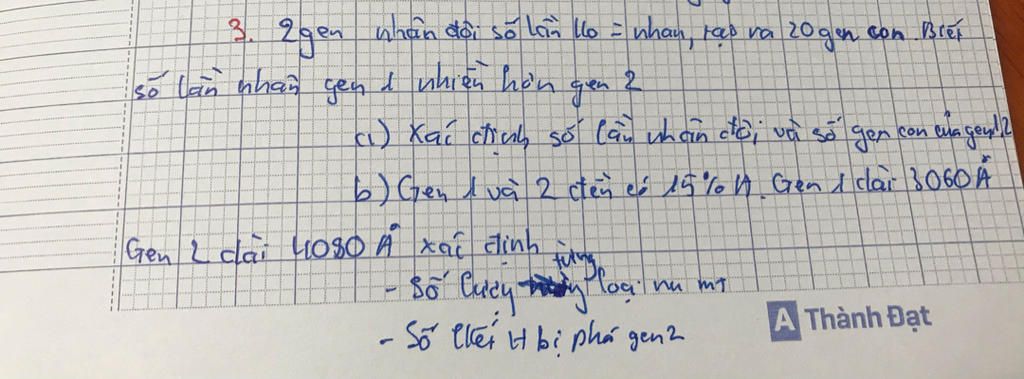 3. 2gen nhân đôi số lần ko = nhau, tạo ra 20 gen con. Biết
số lần nhân gen 1 nhiều hơn gen 2
a) Xác định số lần nhân đôi và số gen con của gen 1,2
b) Gen 1 và 2 đều có 15% A. Gen 1 dài 3060 Å
Gen 2 dài 4080 Å xác định
- Số lượng từng loại nu mt
- Số lkết H bị phá gen 2
A Thành Đạt